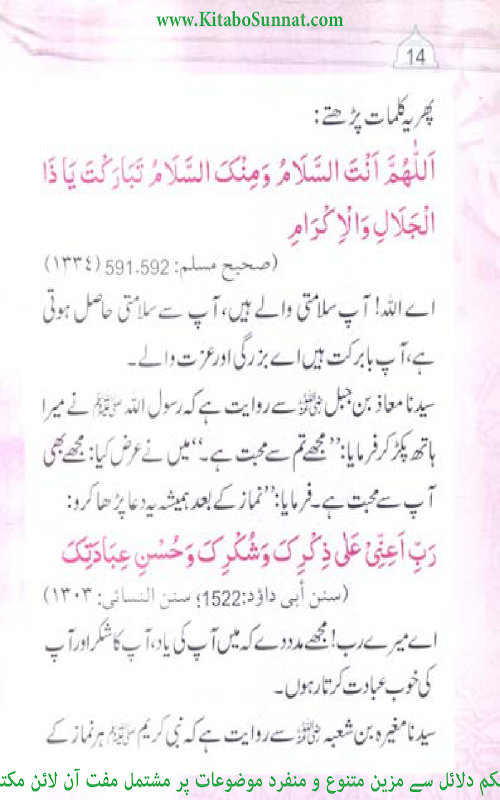 www.KitaboSunnat.com
14
پھر یہ کلمات پڑھتے:
اَللّٰهُمَّ اَنْتَ السَّلَامُ وَمِنْکَ السَّلَامُ تَبَارَکْتَ یَا ذَا
الْجَلَالِ وَالْاِکْرَامِ
(صحیح مسلم: 591،592 (۱۳۳٤)
اے اللہ! آپ سلامتی والے ہیں، آپ سے سلامتی حاصل ہوتی
ہے، آپ بابرکت ہیں اے بزرگی اور عزت والے۔
سیدنا معاذ بن جبل رضی اللہ عنہ سے روایت ہے کہ رسول اللہ ﷺ نے میرا
ہاتھ پکڑ کر فرمایا: ’’مجھے تم سے محبت ہے۔‘‘ میں نے عرض کیا: مجھے بھی
آپ سے محبت ہے۔ فرمایا: ’’نماز کے بعد ہمیشہ یہ دعا پڑھا کرو:
رَبِّ اَعِنِّیْ عَلٰی ذِکْرِکَ وَشُکْرِکَ وَحُسْنِ عِبَادَتِکَ
(سنن أبی داؤد:1522؛ سنن النسائی: ۱۳۰۳)
اے میرے رب! مجھے مدد دے کہ میں آپ کی یاد، آپ کا شکر اور آپ
کی خوب عبادت کرتا رہوں۔
سیدنا مغیرہ بن شعبہ رضی اللہ عنہ سے روایت ہے کہ نبی کریم ﷺ ہر نماز کے
دلائل سے مزین متنوع و منفرد موضوعات پر مشتمل مفت آن لائن